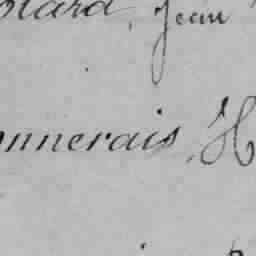 olard, Jean
onnerais, H